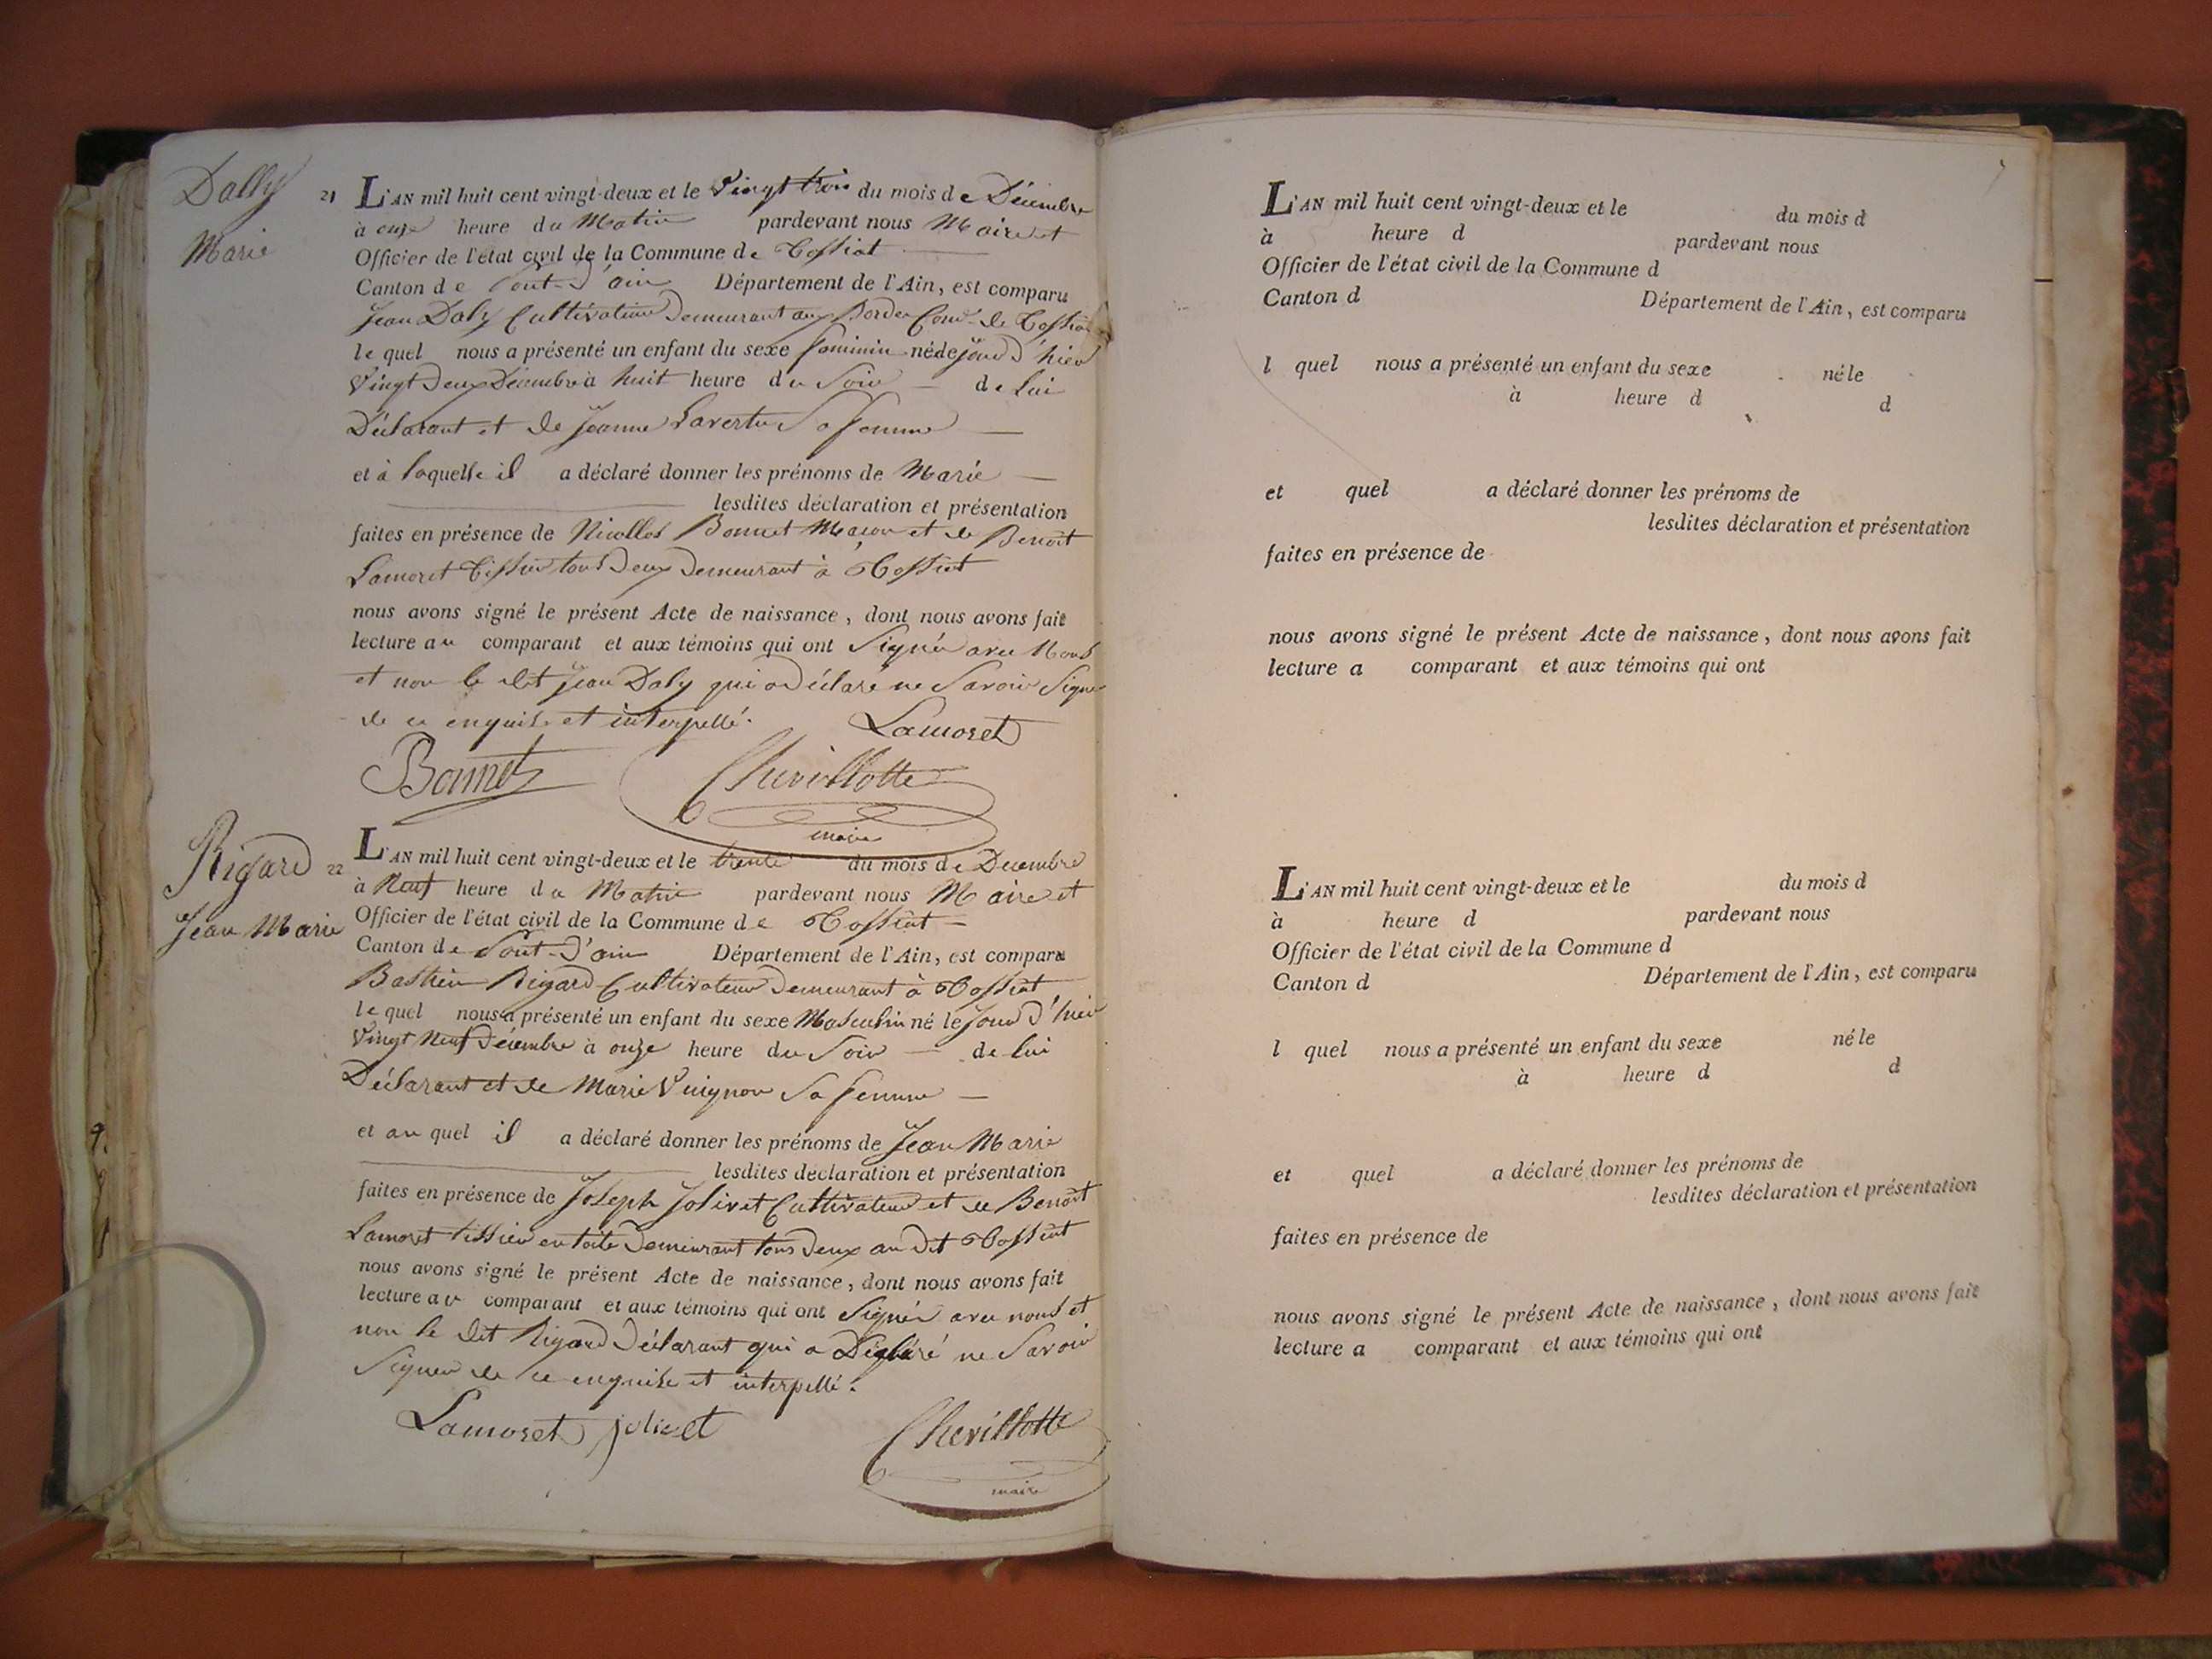 Dally
Marie
21 L'AN mil huit cent vingt-deux et le Vingt trois du mois de Décembre
à onze heure du Matin pardevant nous Maire et
Officier de l'état civil de la Commune de Tossiat
Canton de Pont-d'ain Département de l'Ain, est comparu
Jean Daly Cultivateur Demeurant aux Bordes Comne de Tossiat
lequel nous a présenté un enfant du sexe feminin née le jour d'hier
Vingt Deux Décembre à huit heure du Soir de lui
Déclarant et de Jeanne Sa femme
et à laquelle il a déclaré donner les prénoms de Marie
lesdites déclaration et présentation
faites en présence de Nicollas Bonnet Macon et de Benoît
Lamoret Tissier tous Deux Demeurant à Tossiat
nous avons signé le présent Acte de naissance, dont nous avons fait
lecture au comparant et aux témoins qui ont Signés avec Nous
et non le dit Jean Daly qui a Déclaré ne Savoir Signer
de ce enquise et interpellé.
Lamoret
Bonnet Chevillotte
maire
Rigard
Jean Marie
22 L'AN mil huit cent vingt-deux et le trente du mois de Decembre
à Neuf heure du Matin pardevant nous Maire et
Officier de l'état civil de la Commune de Tossiat
Canton de Pont-D'ain Département de l'Ain, est comparu
Bastien Rigard Cultivateur Demeurant à Tossiat
lequel nous a présenté un enfant du sexe Masculin né le Jour d'hier
Vingt Neuf Décembre à onze heure du Soir de lui
Déclarant et de Marie Vuignon Sa femme
et au quel il a déclaré donner les prénoms de Jean Marie
lesdites déclaration et présentation
faites en présence de Joseph Jolivet Cultivateur et de Benoît
Lamoret tissier en toile Demeurant tous Deux au Dit Tossiat
nous avons signé le présent Acte de naissance, dont nous avons fait
lecture au comparant et aux témoins qui ont Signés avec nous et
non le Dit Rigard Déclarant qui a Déclaré ne Savoir
Signer de ce enquise et interpellé.
Lamoret jolivet Chevillotte
maire
L'AN mil huit cent vingt-deux et le du mois d
à heure d pardevant nous
Officier de l'état civil de la Commune d
Canton d Département de l'Ain, est comparu
l quel nous a présenté un enfant du sexe né le
à heure d d
et quel a déclaré donner les prénoms de
lesdites déclaration et présentation
faites en présence de
nous avons signé le présent Acte de naissance, dont nous avons fait
lecture a comparant et aux témoins qui ont
L'AN mil huit cent vingt-deux et le du mois d
à heure d pardevant nous
Officier de l'état civil de la Commune d
Canton d Département de l'Ain, est comparu
l quel nous a présenté un enfant du sexe né le
à heure d d
et quel a déclaré donner les prénoms de
lesdites déclaration et présentation
faites en présence de
nous avons signé le présent Acte de naissance, dont nous avons fait
lecture a comparant et aux témoins qui ont